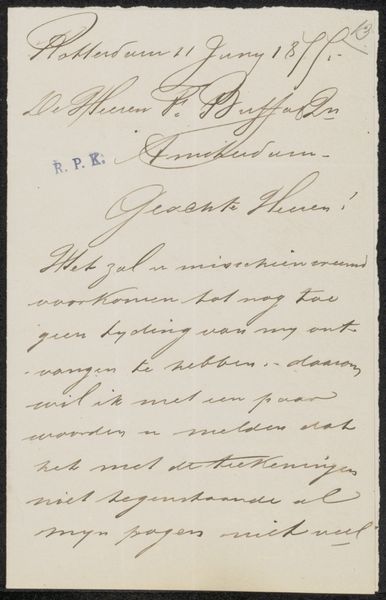 13
Rotterdam 11 Juny 1877.
De Heeren F. Buffa & Zn
R. P. K.
Amsterdam.
Geachte Heeren!
Het zal u misschien vreemd
voorkomen tot nog toe
geen tyding van my ont-
vangen te hebben. - daarom
wil ik met een paar
woorden u melden dat
het met de teekeningen
niet tegenstaande al
myn pogen niet veel